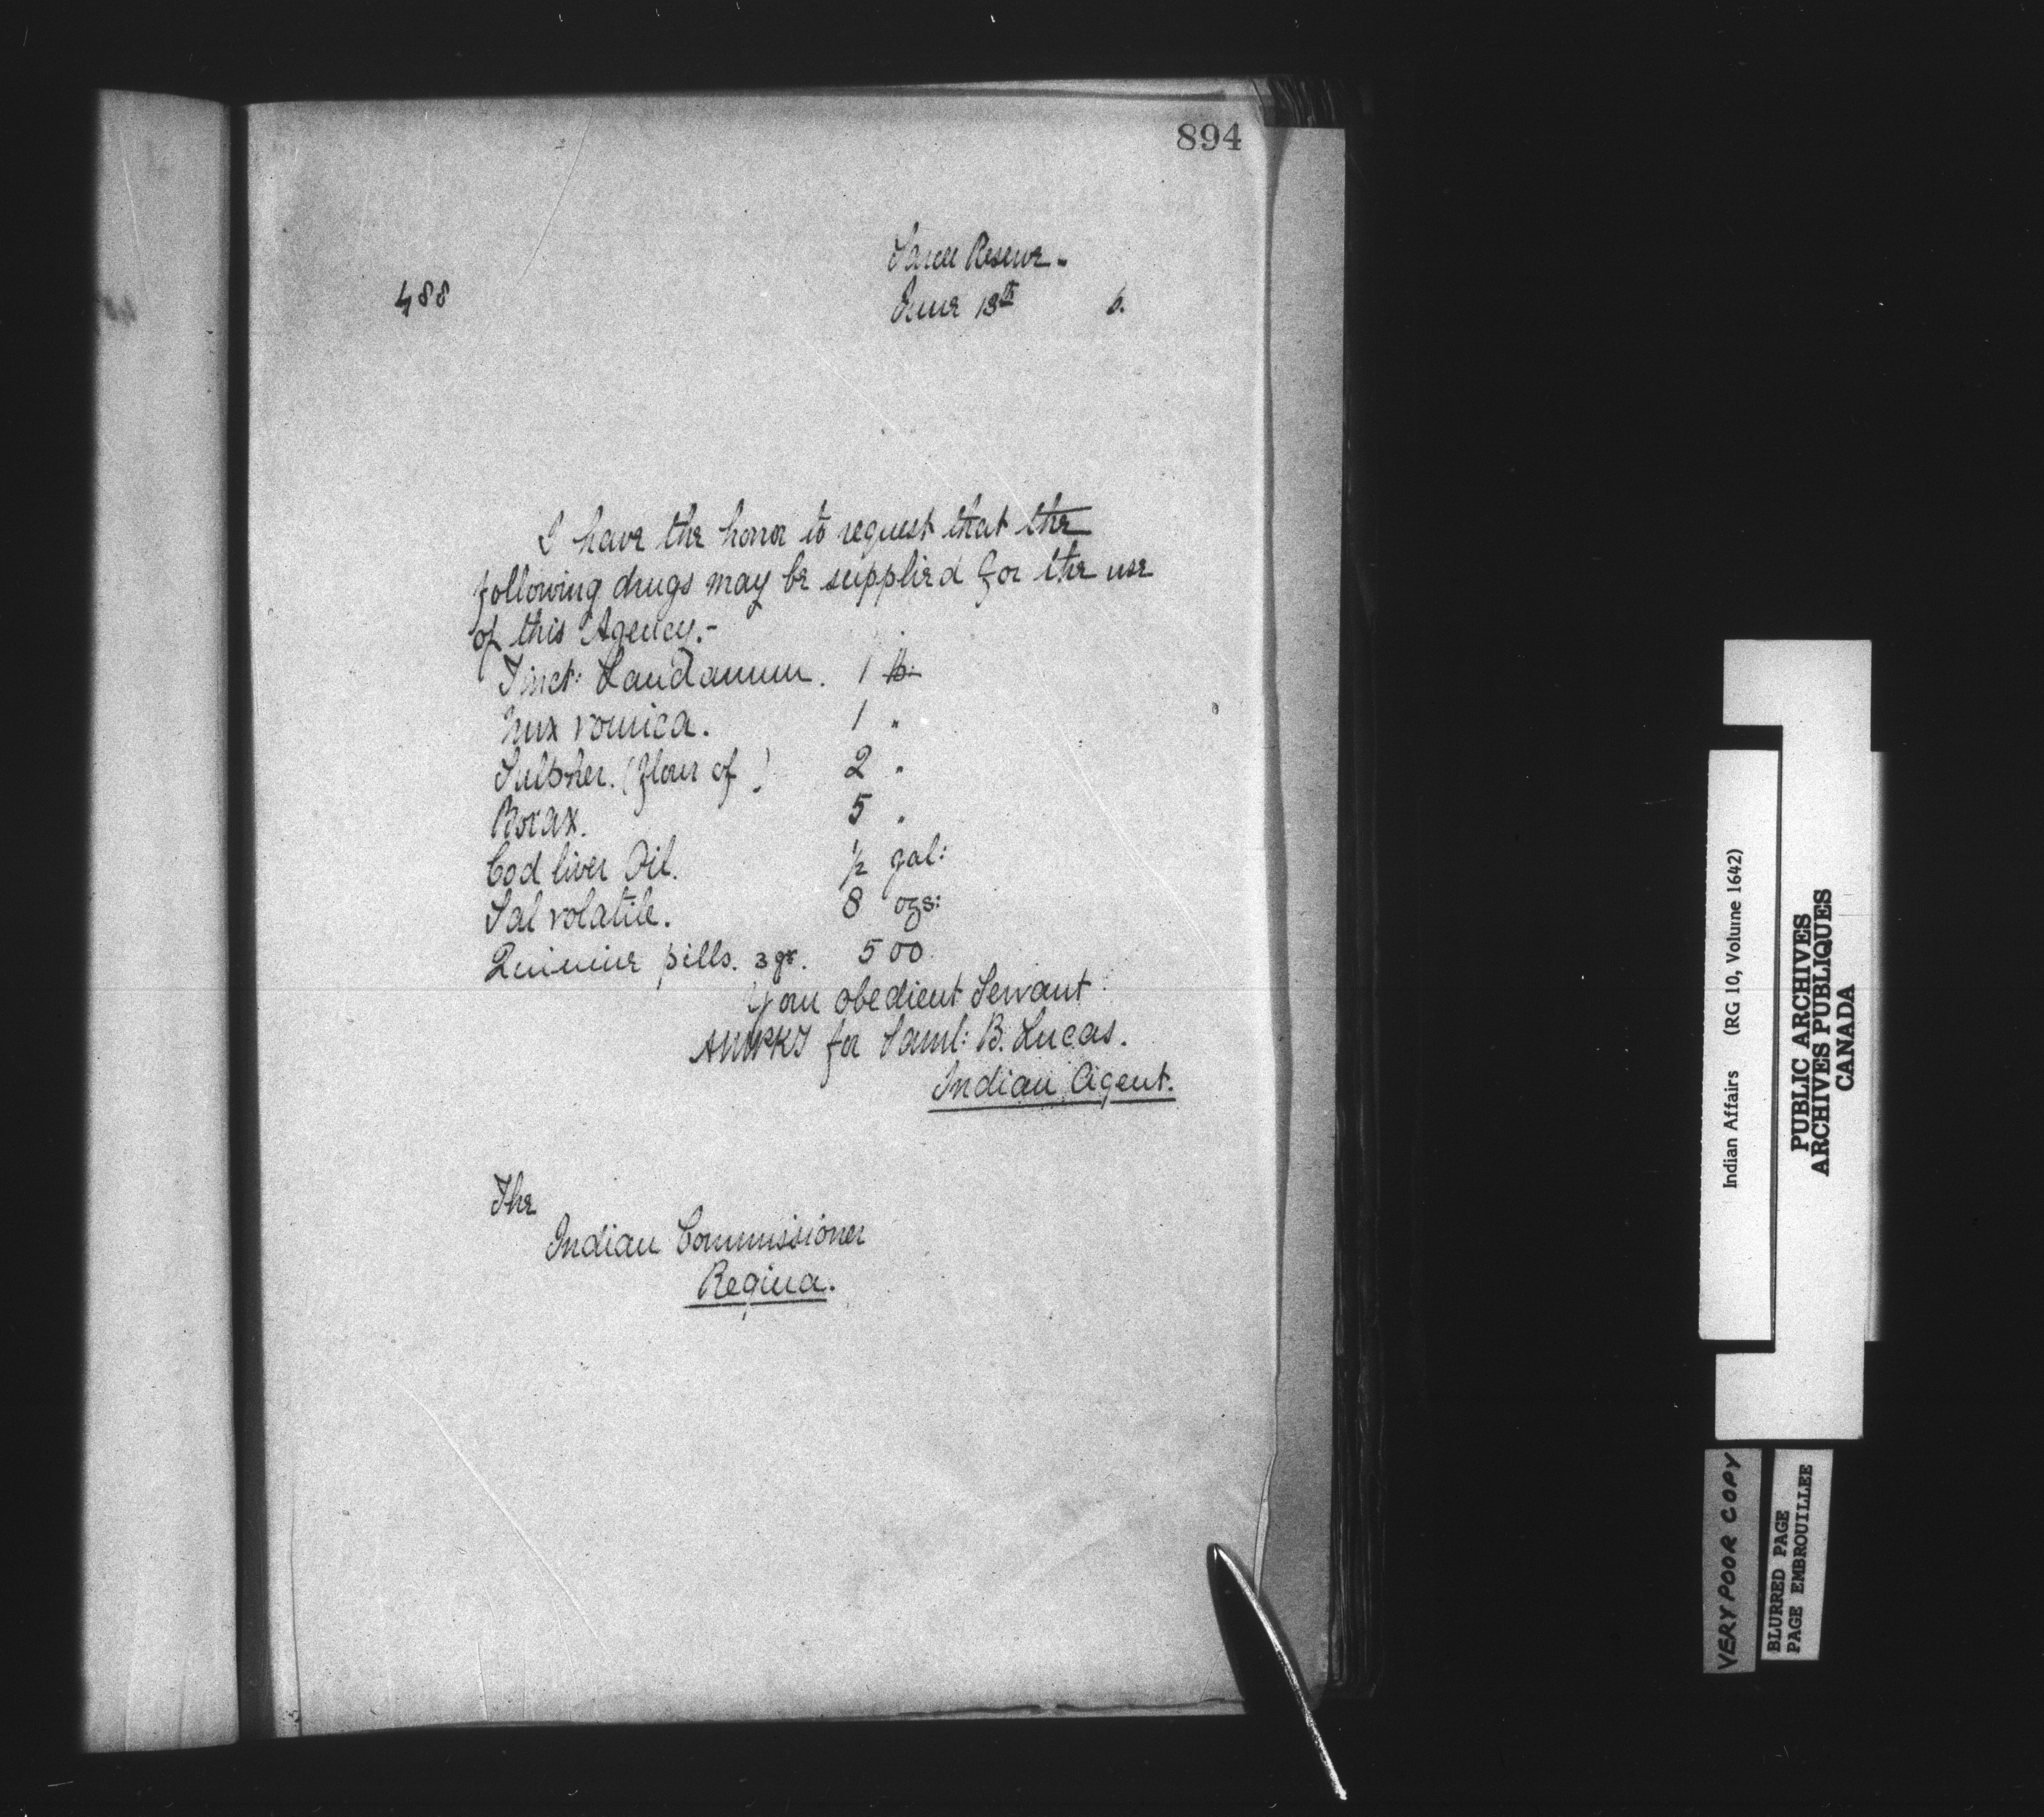 894
Sarcee Reserve -
488
June 13th 6.
I have the honor to request that the
following drugs may be supplied for the use
of this Agency.-
Tinct: Laudanum. 1 lb:
Nux vomica. 1 "
Sulpher. (flour of) 2 "
Borax. 5 "
Cod liver Oil. ½ gal:
Sal volatile. 8 ozs:
Quinine pills. 3 gr. 500
Your obedient Servant
for Saml: B. Lucas.
Indian Agent.
The
Indian Commissioner
Regina.
Indian Affairs (RG 10, Volume 1642)
PUBLIC ARCHIVES
ARCHIVES PUBLIQUES
CANADA
VERY POOR COPY
BLURRED PAGE
PAGE EMBROUILLEE